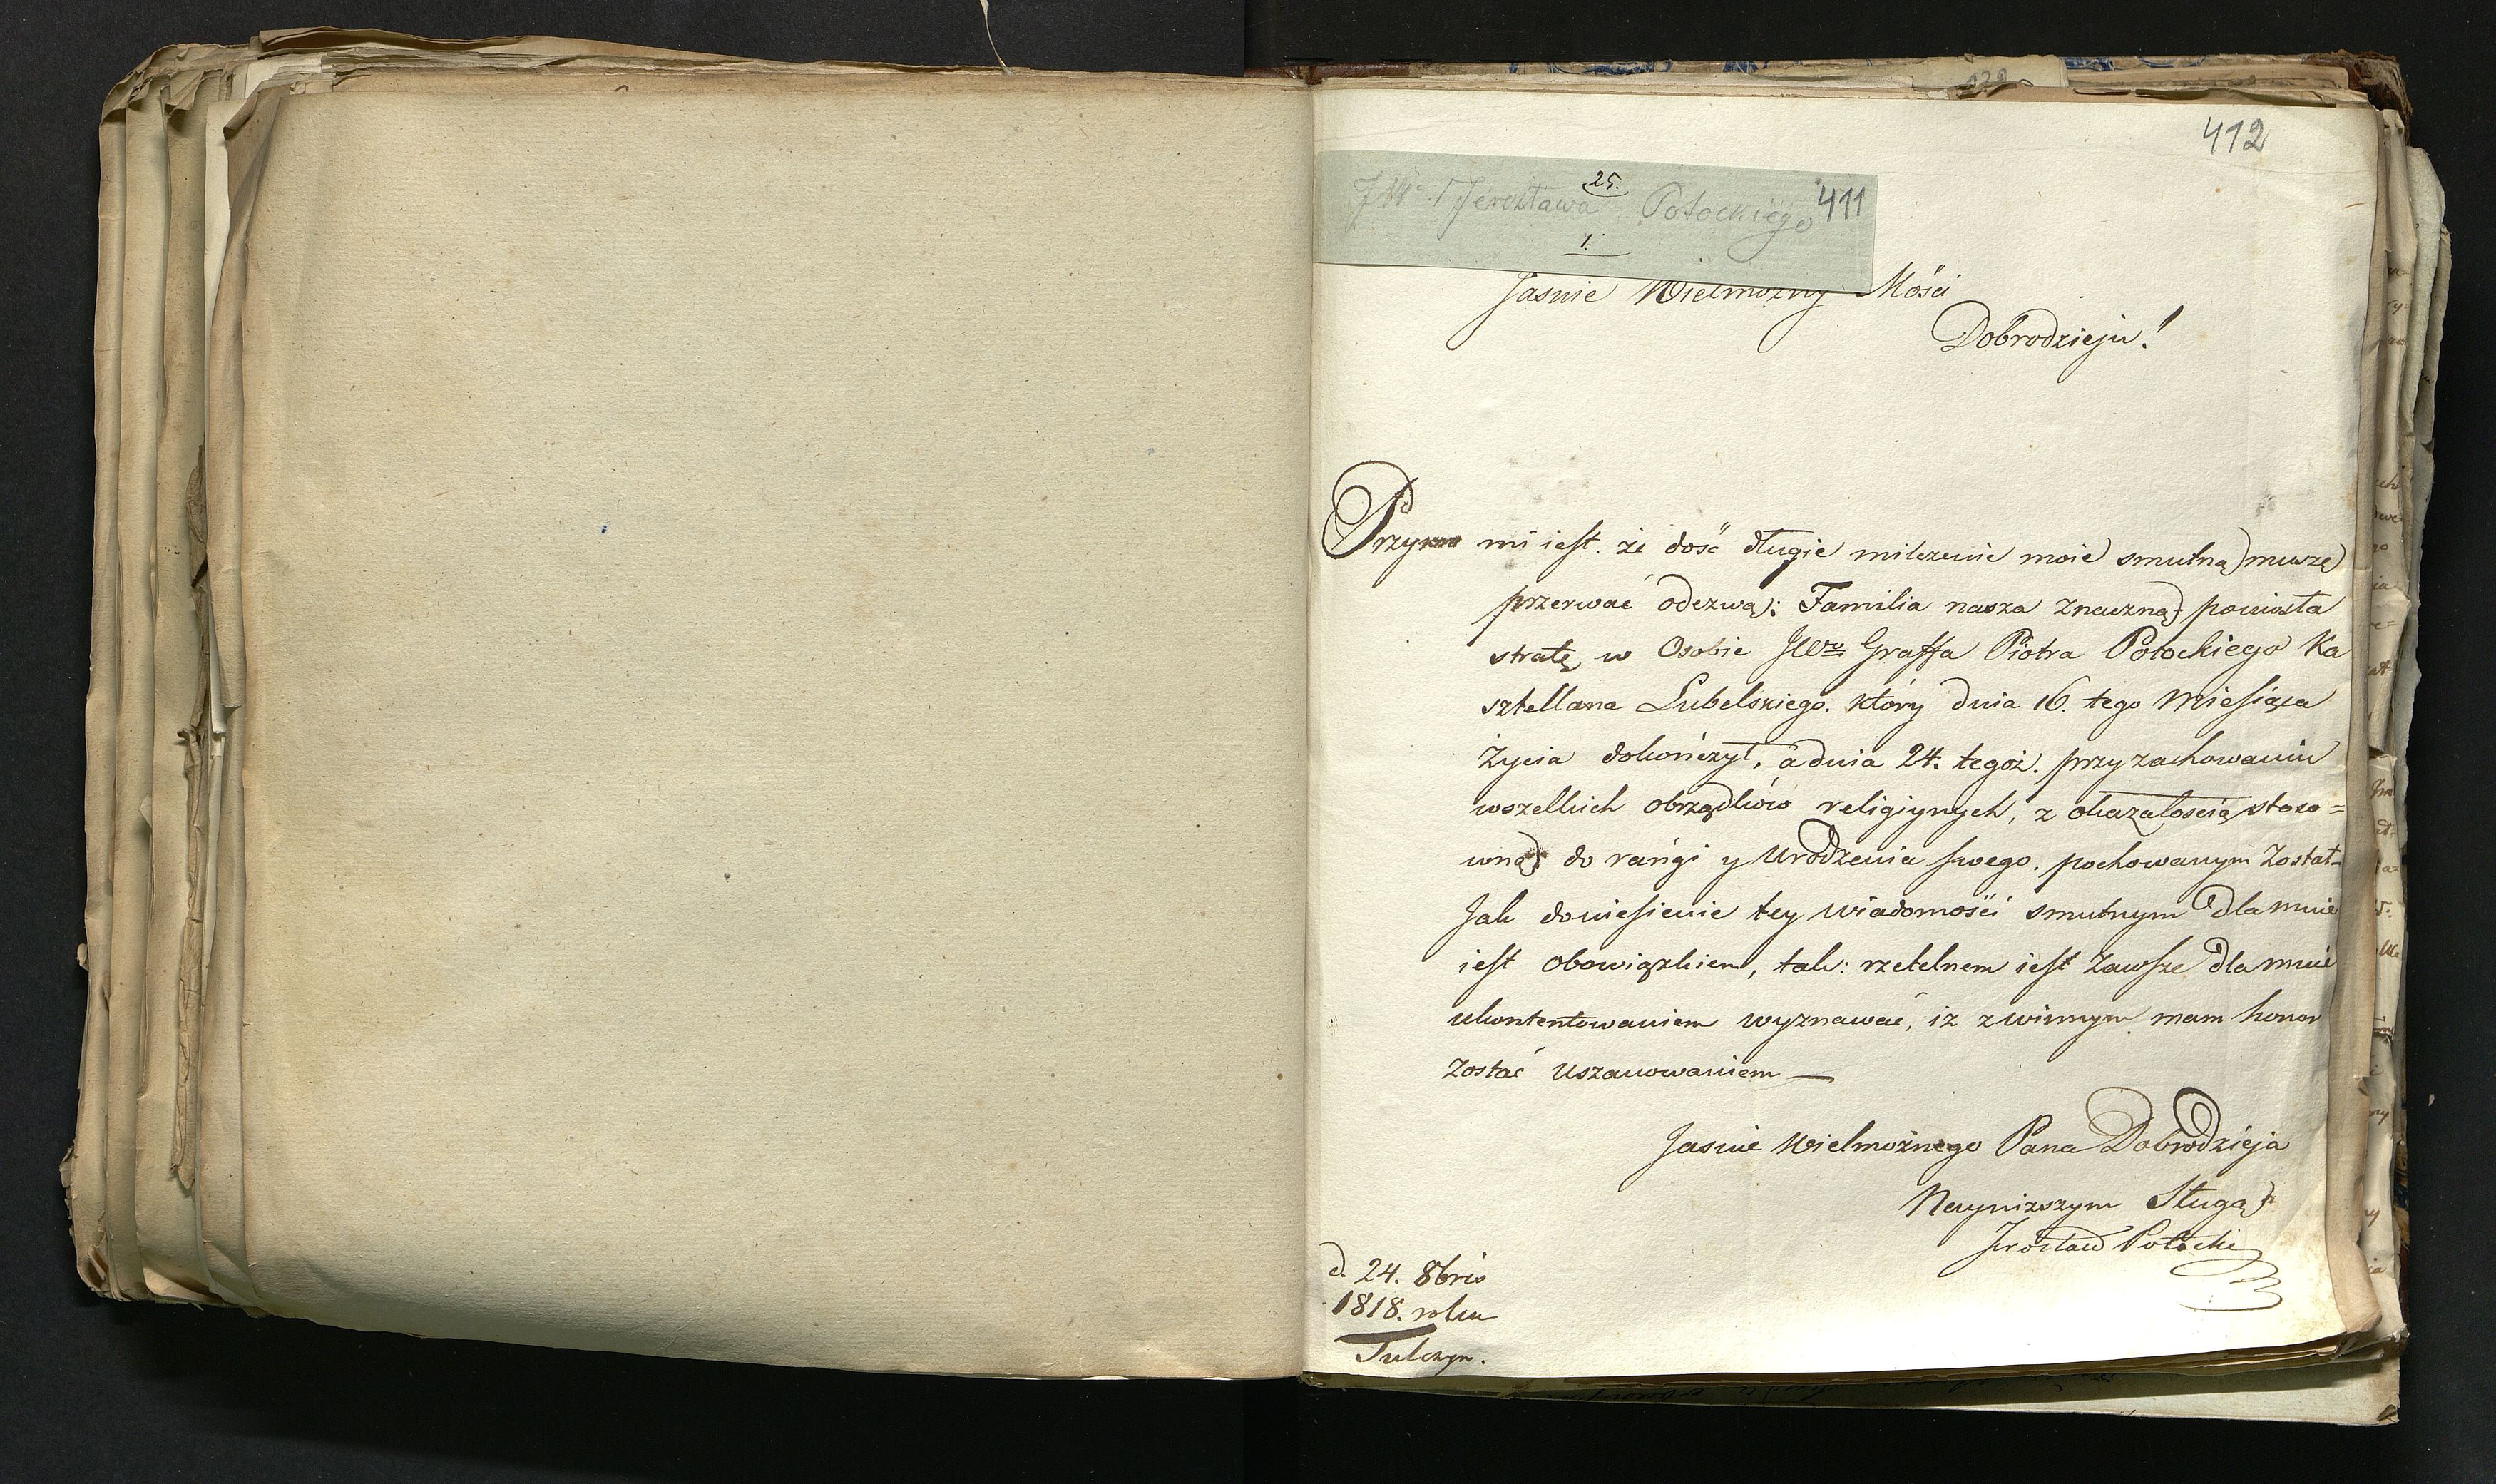 412
25.
Potockiego 411
1.
Jasnie Wielmozny Mości
Dobrodzieju!
Przykro mi iest. że dość długie milczenie moie smutną muszę
przerwać odezwą: Familia nasza znaczną poniosła
stratę w Osobie JWo Graffa Piotra Potockiego Ka
sztellana Lubelskiego. który dnia 16. tego Miesiąca
życia dokończył, a dnia 24. tegoż. przy zachowaniu
wszelkich obrządków religiynych, z okazałoscią stoso=
wną do rangi y Urodzenia swego. pochowanym został_
Jak doniesienie tey wiadomości smutnym dla mnie
iest obowiązkiem, tak: rzetelnem iest zawsze dla mnie
ukontentowaniem wyznawać, iż z winnym mam honor
zostać uszanowaniem —
Jasnie Wielmożnego Pana Dobrodzieja
Nayniższym Sługą
Jarosław Potocki
d. 24. 8bris
1818. roku
Tulczyn.